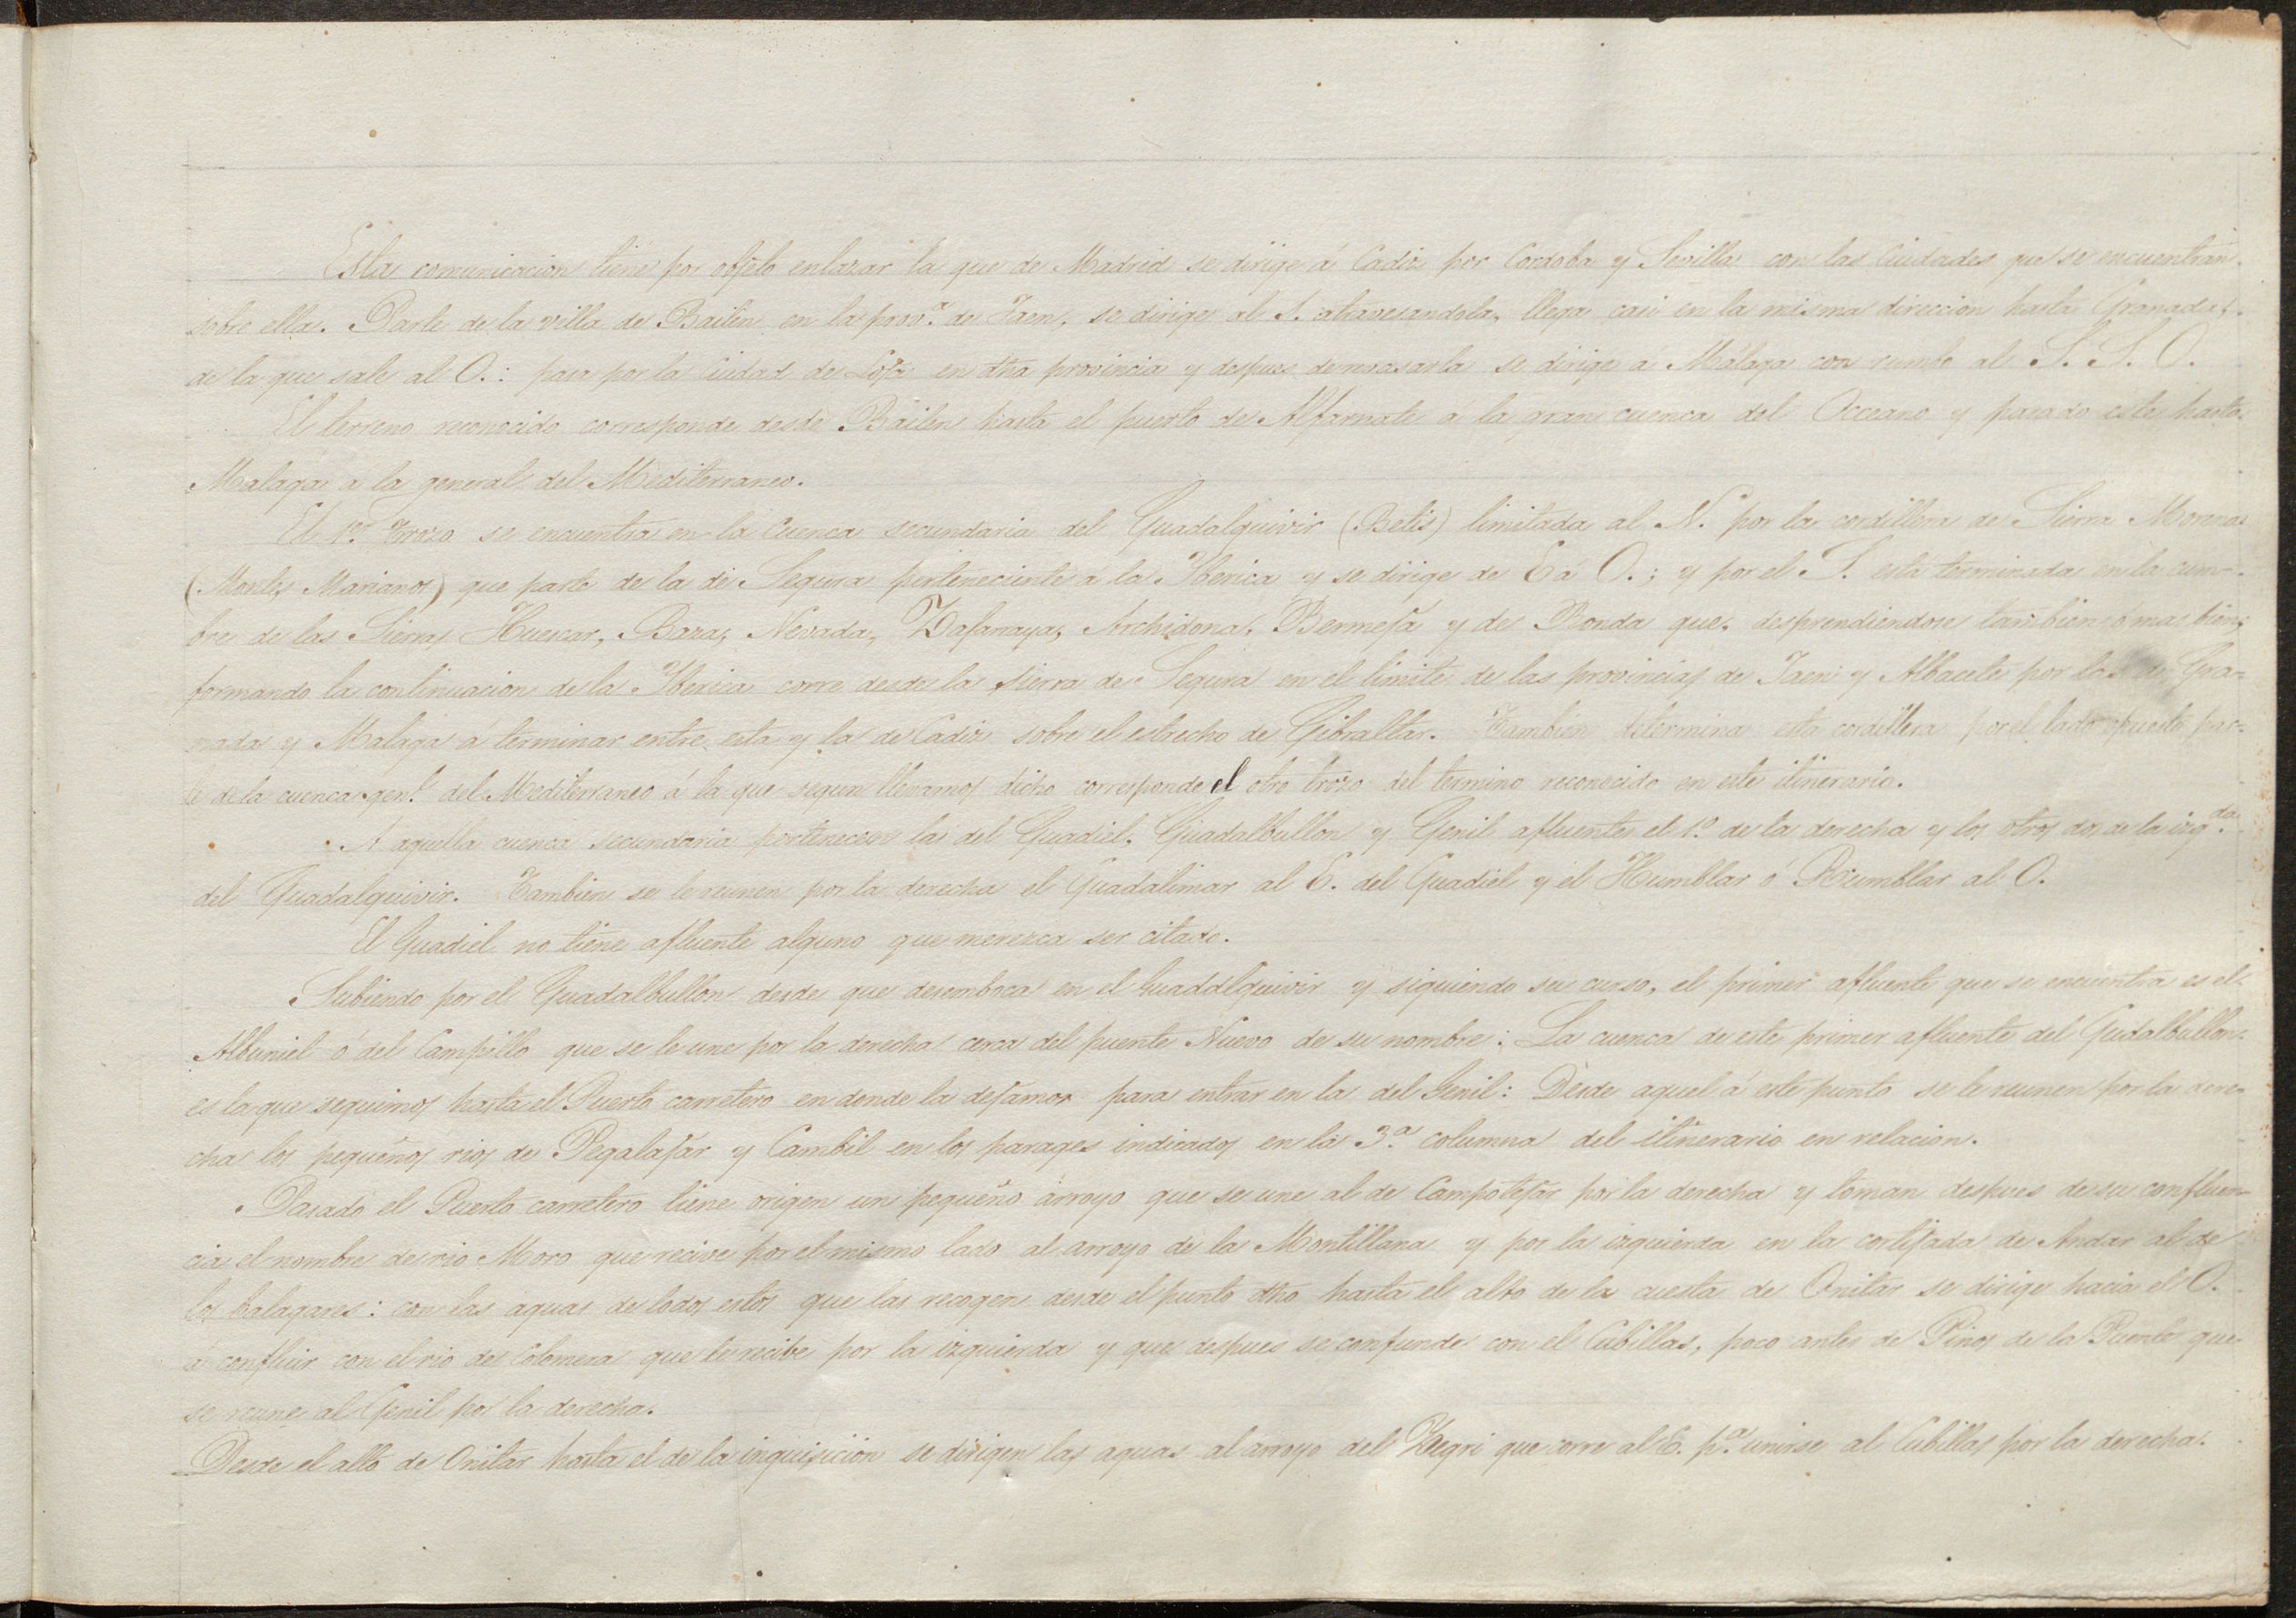 Esta comunicacion tiene por objeto enlazar la que de Madrid se dirige á Cadiz por Cordoba y Sevilla con las Ciudades que se encuentran
sobre ella. Parte de la villa de Bailen en la prov.ª de Jaen, se dirige al S. atravesandola, llega casi en la misma direccion hasta Granada,
de la que sale al O.: pasa por la Ciudad de Loja en dha provincia y despues de rebasarla se dirige á Málaga con rumbo al S. S. O.
El terreno reconocido corresponde desde Bailen hasta el puerto de Alfarnate á la gran cuenca del Occeano y pasado este hasta
Malaga á la general del Mediterraneo.
El 1er trozo se encuentra en la Cuenca secundaria del Guadalquivir (Betis) limitada al N. por la cordillera de Sierra Morena
(Montes Marianos) que parte de la de Segura perteneciente á la Iberica y se dirige de E á O.; y por el S. está terminada en la cum-
bre de las Sierras Huescar, Baza, Nevada, Zafarraya, Archidona, Bermeja y de Ronda que, desprendiendose tambien ó mas bien,
formando la continuacion de la Iberica corre desde la sierra de Segura en el limite de las provincias de Jaen y Albacete por las de Gra-
nada y Malaga á terminar entre esta y la de Cadiz sobre el estrecho de Gibraltar. Tambien determina esta cordillera por el lado opuesto par-
te de la cuenca gen.l del Mediterraneo á la que segun llevamos dicho corresponde el otro trozo del termino reconocido en este itinerario.
A aquella cuenca secundaria pertenecen las del Guadiel, Guadalbullon y Genil afluentes el 1.º de la derecha y los otros dos de la izq.da
del Guadalquivir. Tambien se le reunen por la derecha el Guadalimar al E. del Guadiel y el Humblar ó Rumblar al O.
El Guadiel no tiene afluente alguno que merezca ser citado.
Subiendo por el Guadalbullon desde que desemboca en el Guadalquivir y siguiendo su curso, el primer afluente que se encuentra es el
Albuniel ó del Campillo que se le une por la derecha cerca del puente Nuevo de su nombre: La cuenca de este primer afluente del Gudalbullon
es la que seguimos hasta el Puerto carretero en donde la dejamos para entrar en la del Genil: Desde aquel á este punto se le reunen por la dere-
cha los pequeños rios de Pegalajar y Cambil en los parages indicados en la 3.ª columna del itinerario en relacion.
Pasado el Puerto carretero tiene origen un pequeño arroyo que se une al de Campotejar por la derecha y toman despues de su confluen-
cia el nombre de rio Moro que recive por el mismo lado al arroyo de la Montillana y por la izquierda en la cortijada de Andar al de
los Calagares: con las aguas de todos estos que las recogen desde el punto dho hasta el alto de la cuesta de Onitar se dirige hacia el O.
á confluir con el rio de Colomera que le recibe por la izquierda y que despues se confunde con el Cubillas, poco antes de Pinos de la Puente que
se reune al Genil por la derecha.
Desde el alto de Onitar hasta el de la inquisicion se dirigen las aguas al arroyo del Zegri que corre al E. p.ª unirse al Cubillas por la derecha.